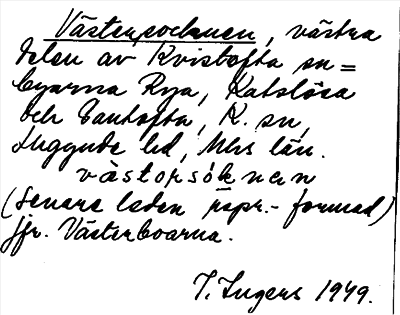 Västersocknen, västra
delen av Kvistofta sn =
byarna Rya, Katslösa
och Tauhofta, K. sn,
Luggude hd, Mhs län.
västorsóknan
(senare leden pspr.- formad)
jfr. Västerboarna.
T. Ingers 1949.